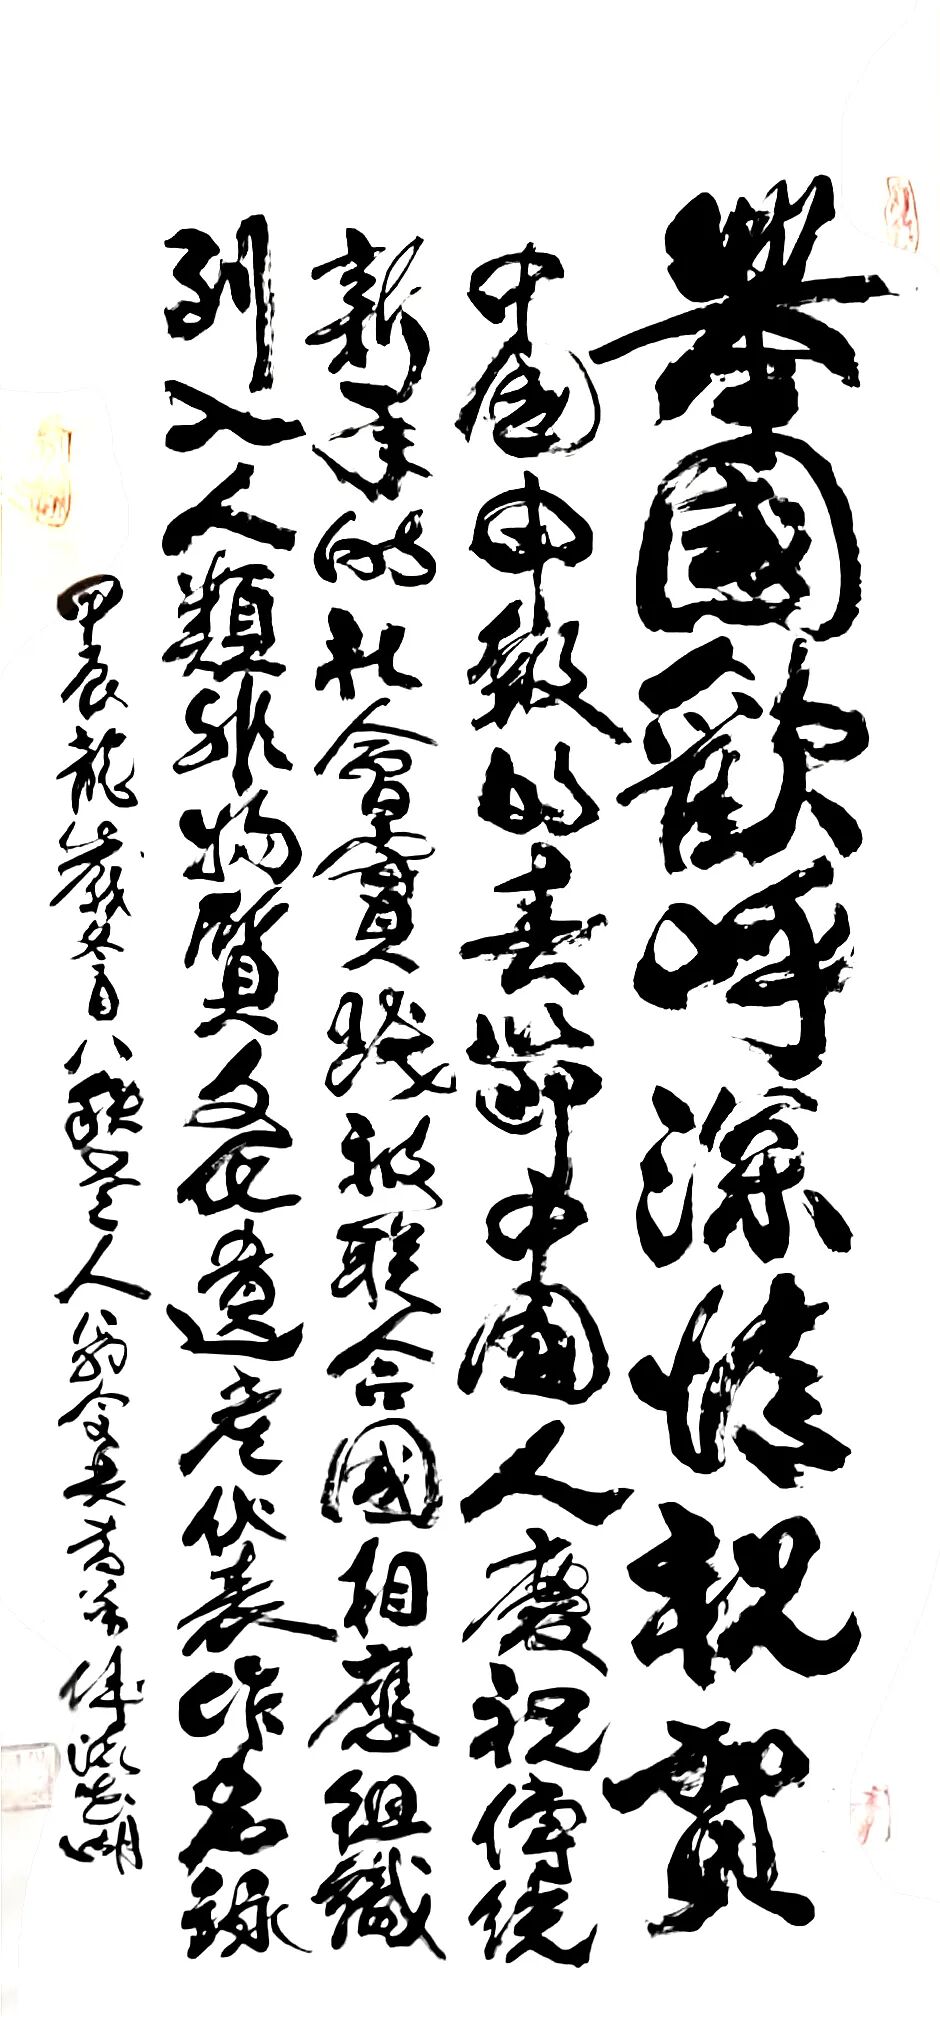 舉國歡呼深情祝賀
中國申報的春節中國人慶祝傳統
新年的社會實踐被联合國相應組織
列入人類非物質文化遺產代表作名錄
甲辰龍歲冬首八 人